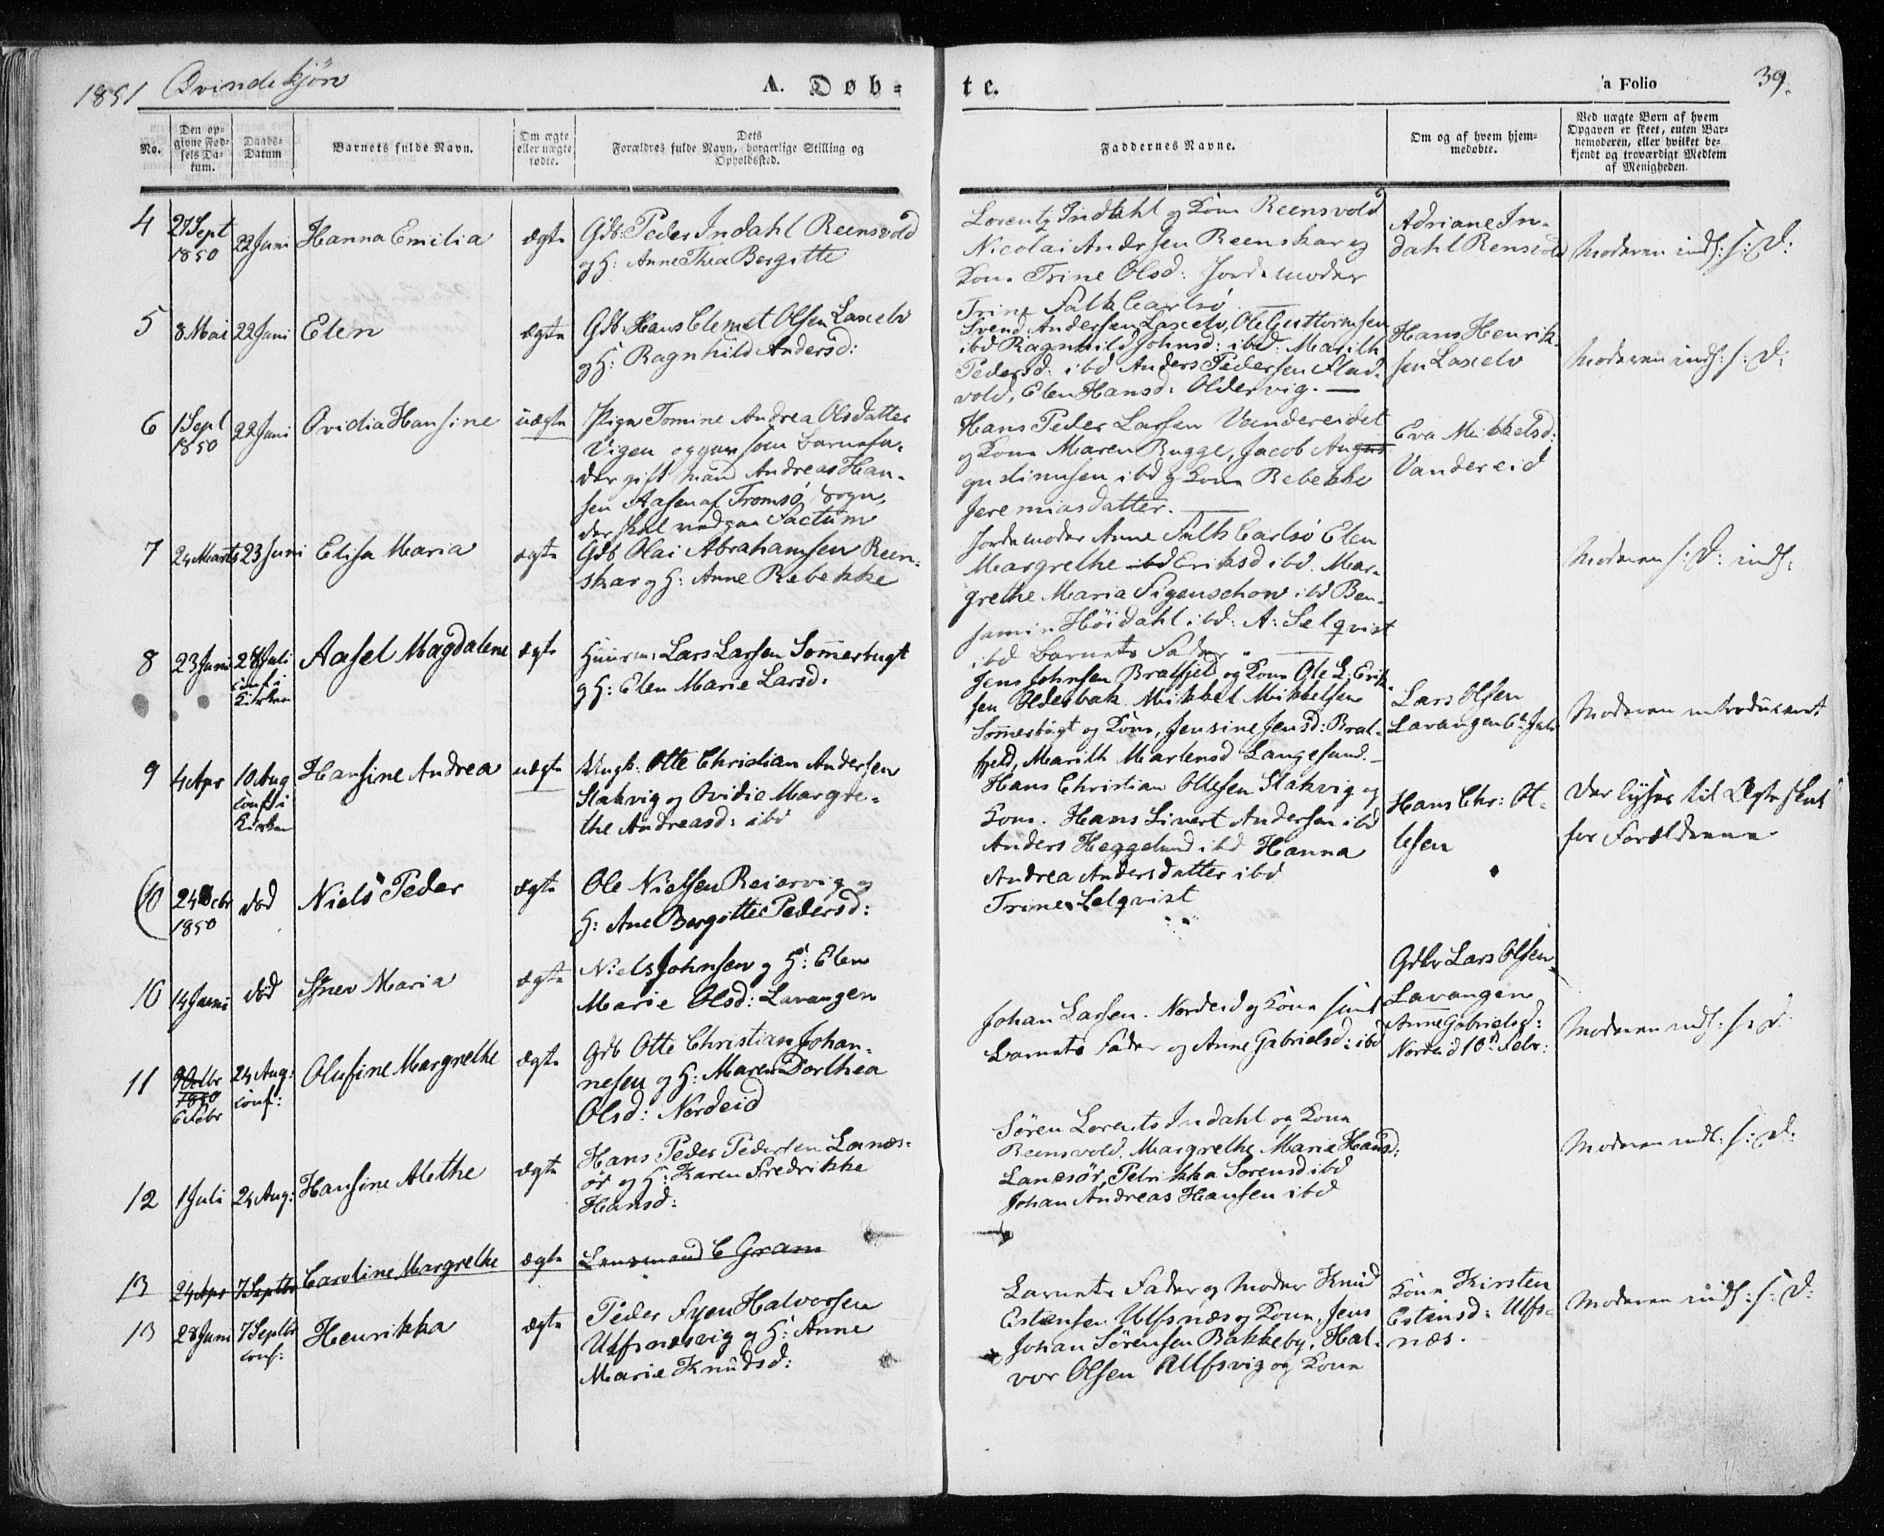 1851 Qvindekjøn
A. Døb=
te.
a Folio
39.
No.
Den op-
givne Fød-
sels Da-
tum.
Daabs-
Datum
Barnets fulde Navn.
Om ægte
eller uægte
fødte.
Dets
Forældres fulde Navn, borgerlige Stilling og
Opholdssted.
Faddernes Navne.
Om og af hvem hjem-
medøbte.
Ved uægte Børn af hvem
Opgaven er skeet, enten Bar-
nemoderen, eller hvilket be-
kjendt og troværdigt Medlem
af Menigheden.
4
27 Sept
1850
22 Juni
Hanna Emilia
ægte
Gdb: Peder Indahl Reensvold
og H: Anne Thea Bergitte
Lorentz Indahl og Kone Reensvold
Nicolai Andersen Reenskar og
Kone Trine Olsd: Jordemoder
Trine Falk Carlsø
Adriane In-
dahl Rensvold
Moderen inds: s: D:
5
8 Mai
22 Juni
Elen
ægte
Gdb: Hans Clemet Olsen Laxelv
og H: Ragnhild Andersd:
Svend Andersen Laxelv, Ole Guttormsen
ibd Ragnhild Johnsd: ibd: Marith
Pedersd: ibd Anders Pedersen Flad-
vold, Elen Hansd: Oldervig.
Hans Henrik-
sen Laxelv
Moderen inds: s: D:
6
1 Sept
1850
22 Juni
Ovidia Hansine
uægte
Pige Tomine Andrea Olsdatter
Vigen opgiver som Barnefa-
der gift Mand Andreas Han-
sen Aasen af Tromsø Sogn,
der skal vedgaa Factum
Hans Peder Larsen Vandereidet
og Kone Maren Bugge, Jacob Au
gustinusen ibd og Kone Rebekka
Jeremiasdatter.
Eva Mikkelsd:
Vandereid
7
24 Marts
23 Juni
Elisa Maria
ægte
Gdb Olai Abrahamsen Reen-
skar og H: Anne Rebekke
Jordemoder Anne Falk Carlsø Elen
Margrethe ibd Eriksd ibd. Mar-
grethe Maria Figenschow ibd Ben-
jamin Høidahl ibd: A: Selqvist
ibd Barnets Fader.
Moderen s: D: inds:
8
23 Juni
28 Juli
conf i
Kirken
Aasel Magdalene
ægte
Huusm: Lars Larsen Sommerbugt
og H: Elen Marie Larsd:
Jens Johnsen Bratfjeld og Kone Ole L. Erik-
sen Olderbak Mikkel Mikkelsen
Sommerbugt og Kone, Jensine Jensd: Brat-
fjeld, Marith Martensd Langesund.
Lars Olsen
Lavangen 6te Juli
Moderen introduceret
9
4 Apr
10 Aug
conf i
Kirken
Hansine Andrea
uægte
Ungk: Otte Christian Andersen
Stakvig og Ovidie Margre-
the Andreasd: ibd
Hans Christian Ollesen Stakvig og
Kone. Hans Sivert Andersen ibd
Anders Heggelund ibd Hanna
Andrea Andersdatter ibd
Trine Selqvist
Hans Chr: Ol-
lesen
Der lyses til Ægteskab
for Forældrene
(10
24 Octbr
1850
død
Niels Peder
ægte
Ole Nielsen Reiervig og
H: Ane Bergitte Pedersd:
10
14 Juni
død
Maria
ægte
Niels Johnsen og H: Elen
Marie Olsd: Lavangen
Gdbr Lars Olsen
Lavangen
11
1850
6 Febr
24 Aug:
conf:
Olufine Margrethe
ægte
Gdb Otte Christian Johan-
nesen og H: Maren Dorthea
Olsd: Nordeid
Johan Larsen. Nordeid og Kone samt
Barnets Fader og Anne Gabrielsd: ibd
Anne Gabrielsd:
Nordeid 10de Febr:
Moderen inds: s: D:
12
1 Juli
24 Aug:
Hansine Alethe
ægte
Hans Peder Pedersen Lanæs-
ør og H: Karen Fredrikke
Hansd:
Søren Lorents Indahl og Kone
Reensvold. Margrethe Marie Hansd:
Lanesør, Petrikka Sorensd ibd
Johan Andreas Hansen ibd
Moderen inds: s: D:
13
24 Apr
7 Septbr
Caroline Margrethe
ægte
Lensmand C Gram
13
28 Juni
7 Septbr
conf:
Henrikka
ægte
Peder Fyen Halvorsen
Ulfsnæsvig og H: Anne
Marie Knudsd:
Barnets Fader og Moder Knud
Estensen Ulfsnæs og Kone, Jens
Johan Sørensen Bakkeby, Hal-
vor Olsen Ulfsvig og Kone
Kone Kirsten
Estensd: Ulfs-
næs.
Moderen inds: s: D: